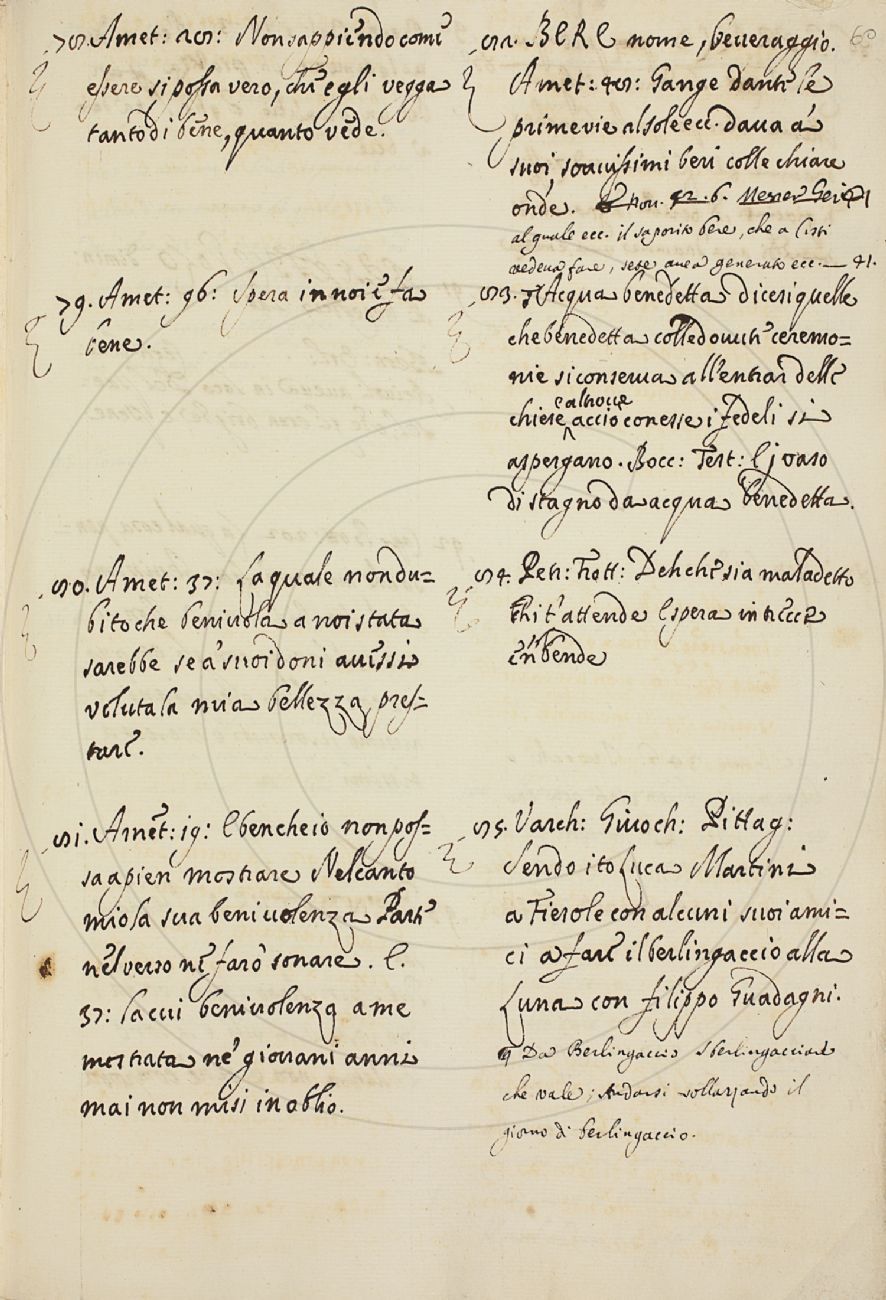 78. Amet: 28: Non sappiendo come
essere si possa vero, che egli vegga
tanto di bene, quanto vede.
79. Amet: 96: Spera in noi e fa
bene.
80. Amet: 37: La quale non du=
bito che benivola a noi stata
sarebbe se a' suoi doni avessi
voluta la mia bellezza pres=
tare.
81. Amet: 19: E bencheio non pos=
sa apien mostrare Nel canto
mio la sua benivolenza Parte
nel verso ne farò sonare. E.
37: la cui benivolenza a me
mostrata ne' giovani anni
mai non misi in oblio.
60
82. BERE nome, beveraggio.
Amet: 48: Gange dante le
prime vie al sole ecc. dava a
suoi soavissimi beri colle chiare
onde. Nov. 52. 6. Messer Geri
al quale ecc. il saporito bere, che a Cisti
vedeva fare, sete avea generato ecc. 41.
83. Acqua benedetta dicesi quella
che benedetta colle dovute ceremo=
nie si conserva all'entrar delle
e altrove
chiese acciò con esse i fedeli si
aspergano. Bocc: Test: E j vaso
di stagno da acqua benedetta.
84. Pet: Frott: Deh che sia maladetto
Chi t'attende E spera in trecce
e 'n bende
85. Varch: Giuoch: Pittag:
Sendo ito Luca Martini
a Fiesole con alcuni suoi ami=
ci a fare il berlingaccio alla
Luna con filippo Guadagni.
¶ Da Berlingaccio Sberlingacciare
che vale; Andarsi sollazzando il
giorno di berlingaccio.